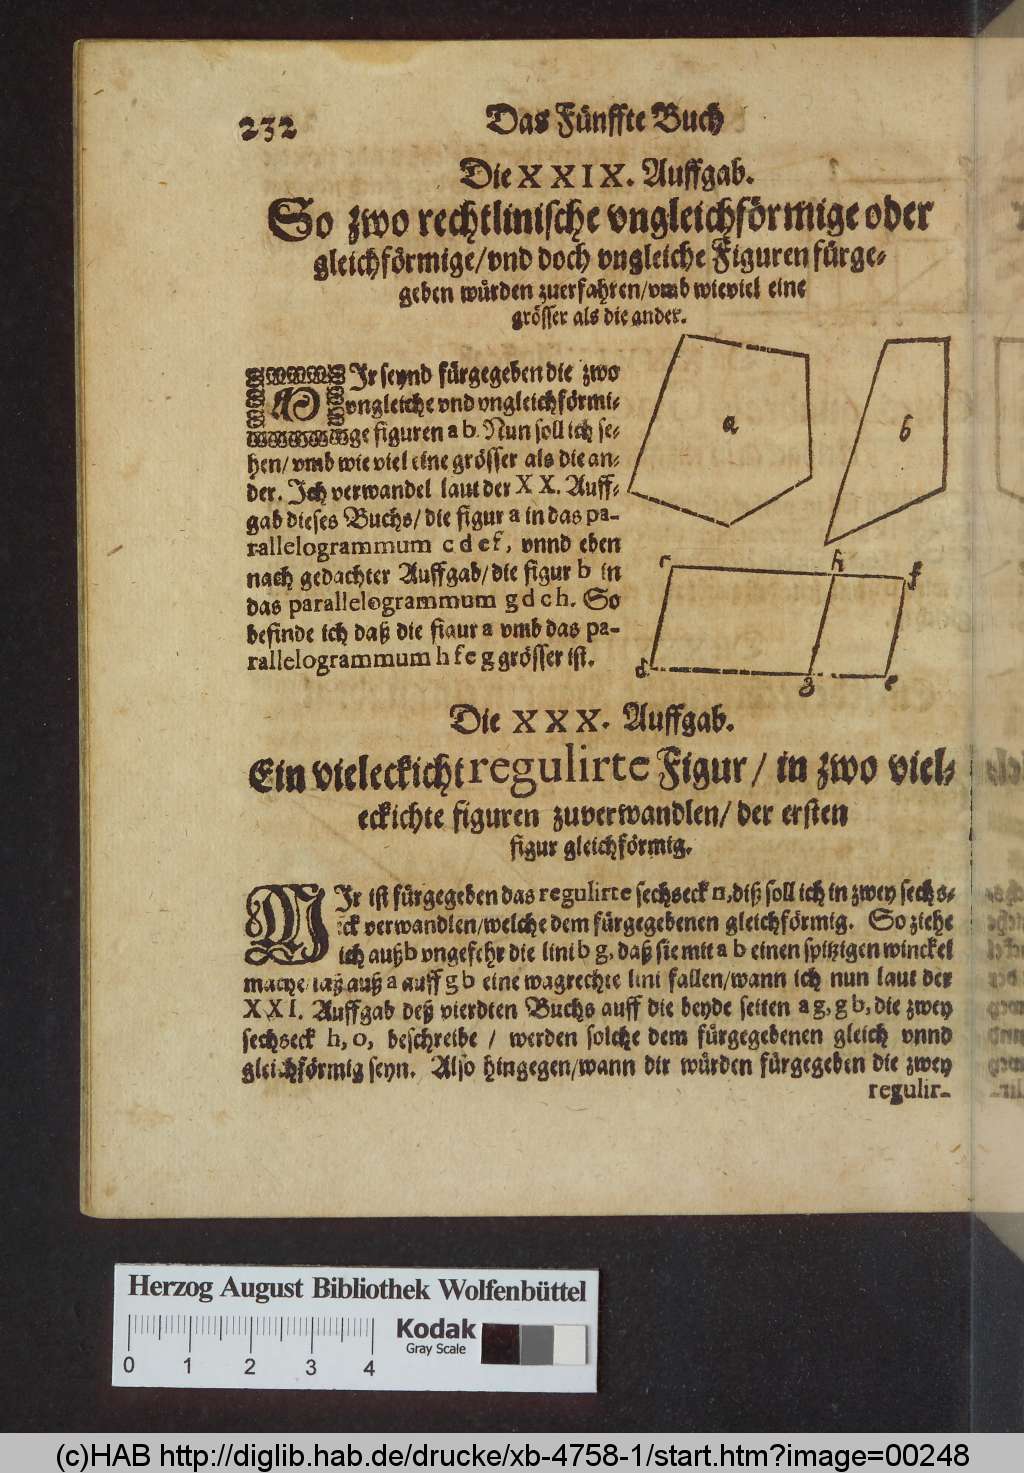 232
Das Fünffte Buch
Die XXIX. Auffgab.
So zwo rechtlinische vngleichförmige oder
gleichförmige/vnd doch vngleiche Figuren fürge-
geben würden zuerfahren/vmb wieviel eine
grösser als die ander.
MIr seynd fürgegeben die zwo
vngleiche vnd vngleichförmi-
ge figuren a b. Nun soll ich se-
hen/ vmb wie viel eine grösser als die an-
der. Ich verwandel laut der XX. Auff-
gab dieses Buchs/ die figur a in das pa-
rallelogrammum c d e f, vnnd eben
nach gedachter Auffgab/die figur b in
das parallelogrammum g d c h. So
befinde ich daß die figur a vmb das pa-
rallelogrammum h f e g grösser ist.
a
b
c
h
f
d
g
e
Die XXX. Auffgab.
Ein vieleckicht regulirte Figur/ in zwo viel-
eckichte figuren zuverwandlen/ der ersten
figur gleichförmig.
MIr ist fürgegeben das regulirte sechseck n, diß soll ich in zwey sechs-
eck verwandlen/welche dem fürgegebenen gleichförmig. So ziehe
ich auß b vngefehr die lini b g, daß sie mit a b einen spitzigen winckel
mache/ laß auß a auff g b eine wagrechte lini fallen/wann ich nun laut der
XXI. Auffgab deß vierdten Buchs auff die beyde seiten a g, g b, die zwey
sechseck h, o, beschreibe / werden solche dem fürgegebenen gleich vnnd
gleichförmig seyn. Also hingegen/wann dir würden fürgegeben die zwey
regulir-
Herzog August Bibliothek Wolfenbüttel
Kodak
Gray Scale
0 1 2 3 4
(c)HAB http://diglib.hab.de/drucke/xb-4758-1/start.htm?image=00248